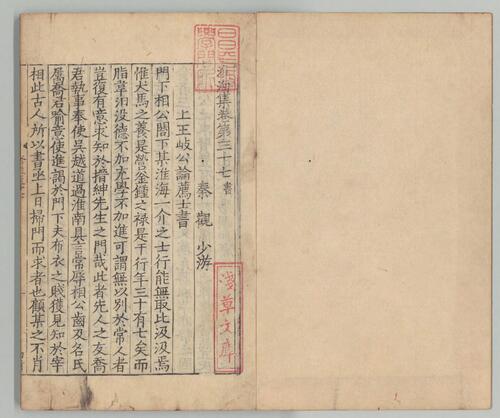 淮海集卷第三十七 書
秦觀 少游
上王岐公論薦士書
門下相公閣下某淮海一介之士行能無取比汲汲焉
惟犬馬之養是營釜鍾之祿是干行年三十有七矣而
脂韋汩没德不加充學不加進可謂無以別於常人者
豈復有意求知於搢紳先生之門哉此者先人之友喬
君執事奉使吳越道過淮南具言常辱相公齒及名氏
屬喬君喻意使進謁於門下夫布衣之賤獲見知於宰
相此古人所以書亟上日掃門而求者也顧某之不肖
淺草文庫